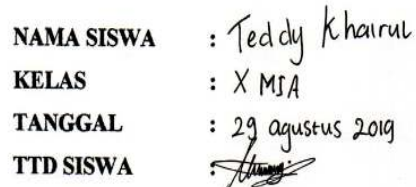 NAMA SISWA : Teddy Khairul
KELAS : X MIA
TANGGAL : 29 agustus 2019
TTD SISWA :